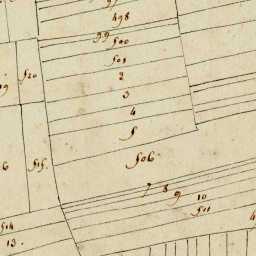 498
99
500
501
2
3
4
5
506
7 8 9
10
501
520
19
515.
6
514
13.
4